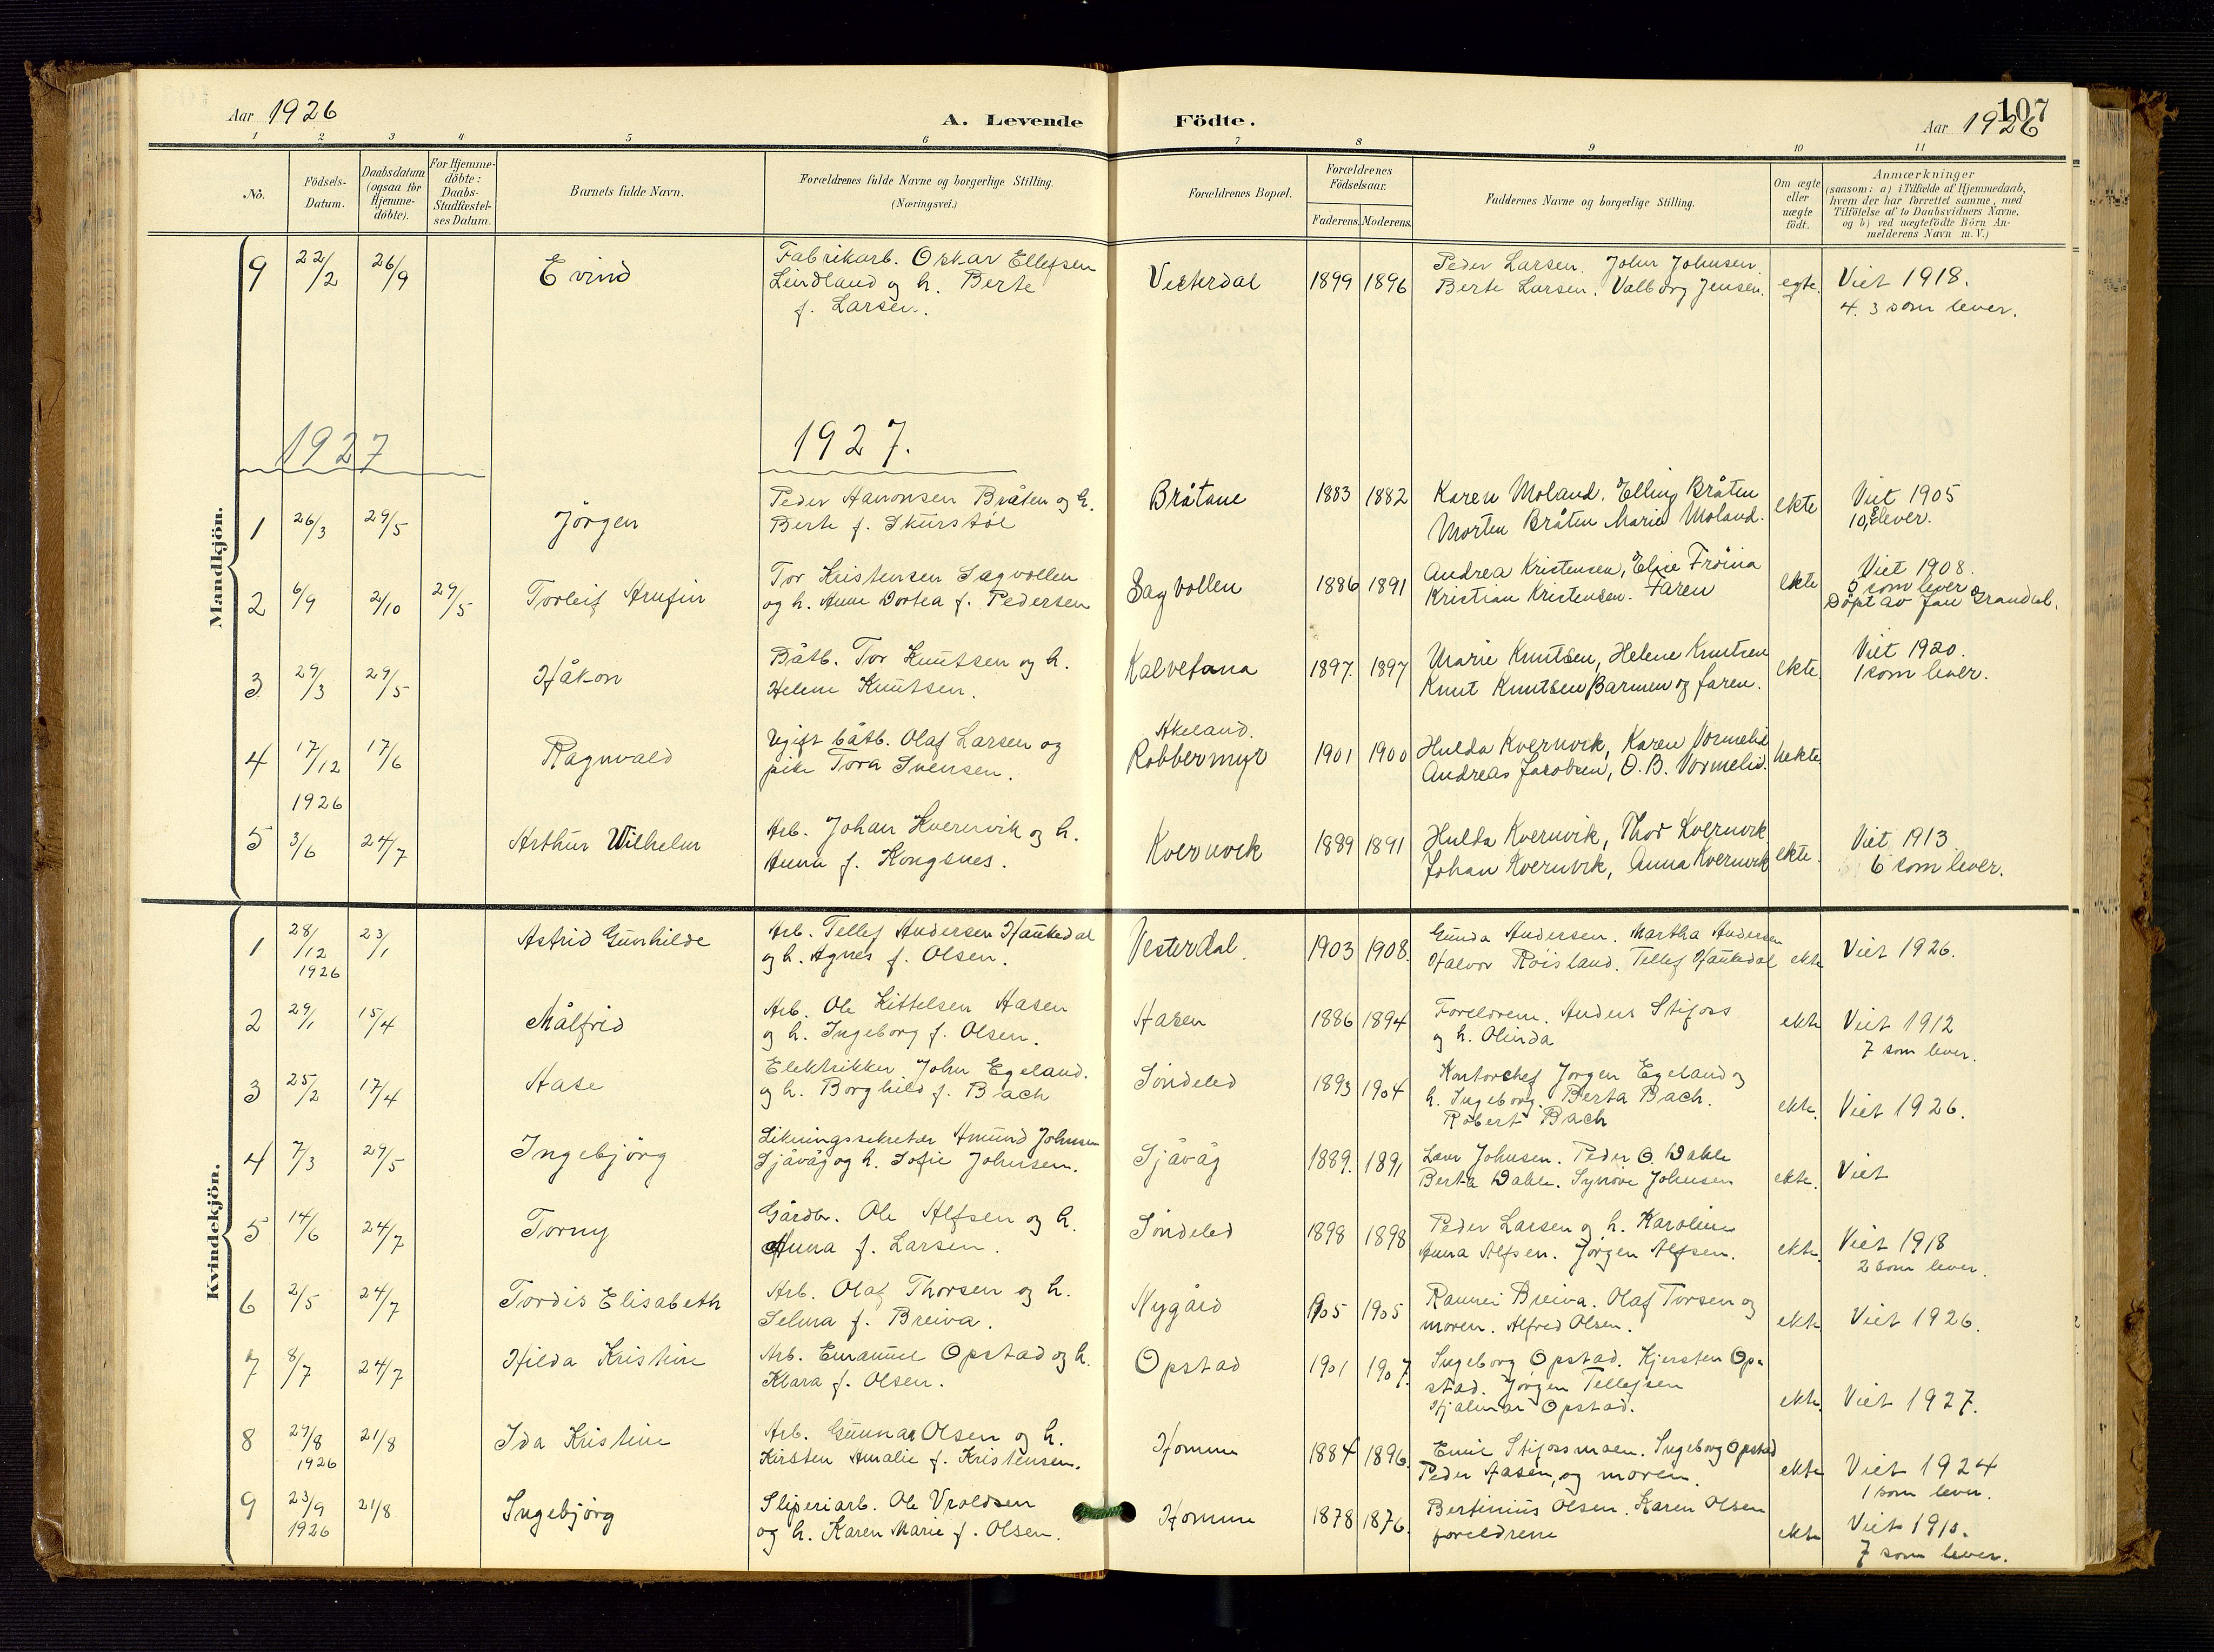 Aar 1926
A. Levende
Födte.
107
Aar 1926
1 2 3 4 5 6 7 8 9 10 11
No.
Födsels-
Datum.
Daabsdatum
(ogsaa for
Hjemme-
döbte).
For Hjemme-
döbte:
Daabs-
Stadfæstel-
ses Datum.
Barnets fulde Navn.
Forældrenes fulde Navne og borgerlige Stilling.
(Næringsvei.)
Forældrenes Bopæl.
Forældrenes
Födselsaar.
Faderens. Moderens.
Faddernes Navne og borgerlige Stilling.
Om ægte
eller
uægte
födt.
Anmærkninger
(saasom: a) i Tilfælde af Hjemmedaab,
hvem der har forrettet samme, med
Tilföielse af to Daabsvidners Navne,
og b) ved uægtefödte Börn An-
melderens Navn m. V.)
Mandkjön.
9 22/2 26/9 Eivind
Fabrikarb. Oskar Ellefsen
Lindland og h. Berte
f. Larsen.
Vesterdal 1899 1896
Peder Larsen. John Johnsen.
Berte Larsen. Valborg Jensen.
egte.
Viet 1918.
4. 3 som lever.
1927
1927.
1 26/3 29/5 Jörgen
Peder Aanonsen Bråten og h.
Berte f. Skurstöl
Bråtane 1883 1882
Karen Moland. Elling Bråten
Morten Bråten Marie Moland.
ekte
Viet 1905
10, 8 lever.
2 6/9 2/10 29/5 Torleif Arnfin
Tor Kristensen Sagvollen
og h. Anne Dortea f. Pedersen
Sagvollen 1886 1891
Andrea Kristensen, Elise Fröina
Kristian Kristensen. Faren
ekte
Viet 1908.
5 som lever
Döpt av Jan Grandal.
3 29/3 29/5 Håkon
Båtb. Tor Knutsen og h.
Helene Knutsen.
Kalvetana 1897. 1897
Marie Knutsen, Helene Knutsen
Knut Knutsen Barmen og faren.
ekte
Viet 1920.
1 som lever.
4 17/12 17/6 Ragnvald
1926
Ugift båtb. Olaf Larsen og
pike Tora Svensen.
Akeland.
Robbermyr 1901 1900
Hulda Kvernvik, Karen Vormelid
Andreas Jacobsen, O. B. Vormelid.
uekte
5 3/6 24/7 Arthur Wilhelm
Arb. Johan Kvernvik og h.
Anna f. Kongsnes.
Kvernvik 1889 1891
Hulda Kvernvik, Thor Kvernvik
Johan Kvernvik, Anna Kvernvik
ekte.
Viet 1913.
6 som lever.
Kvindekjön.
1 28/12 23/1 Astrid Gunhilde
1926
Arb. Tellef Andersen Haukedal
og h. Agnes f. Olsen.
Vesterdal. 1903 1908.
Gunda Andersen. Martha Andersen
Halvor Röisland. Tellef Haukedal
ekte
Viet 1926.
2 29/1 15/4 Målfrid
Arb. Ole Kittelsen Aasen
og h. Ingeborg f. Olsen.
Aasen 1886 1894
Foreldrene. Anders Stifoss
og h. Olinda
ekte
Viet 1912
7 som lever.
3 25/2 17/4 Aase
Elektrikker John Egeland.
og h. Borghild f. Bach
Söndeled 1893 1904
Kontorchef Jörgen Egeland og
h. Ingeborg. Berta Bach.
Robert Bach
ekte.
Viet 1926.
4 7/3 29/5 Ingebjörg
Likningssekretær Amund Johnsen
Sjåvåg og h. Sofie Johnsen.
Sjåvåg 1889. 1891
Lave Johnsen. Peder O. Dahle
Berta Dahle. Synöve Johnsen
ekte.
Viet
5 14/6 24/7 Torny
Gårdbr. Ole Alfsen og h.
Anna f. Larsen.
Söndeled 1898 1898
Peder Larsen og h. Karoline
Anna Alfsen. Jörgen Alfsen.
ekte.
Viet 1918
2 som lever.
6 2/5 24/7 Tordis Elisabeth
Arb. Olaf Thorsen og h.
Selma f. Breiva.
Nygård 1905 1905
Rannei Breiva. Olaf Torsen og
moren. Alfred Olsen.
ekte
Viet 1926.
7 8/7 24/7 Hilda Kristine
Arb. Emanuel Opstad og h.
Klara f. Olsen.
Opstad 1901 1907.
Ingeborg Opstad. Kjersten Op-
stad. Jörgen Tellefsen
Hjalmar Opstad.
ekte.
Viet 1927.
8 27/8 21/8 Ida Kristine
1926
Arb. Gunnar Olsen og h.
Kirsten Amalie f. Kristensen.
Homme 1884 1896.
Emil Stifossmoen. Ingeborg Opstad
Peder Aasen, og moren.
ekte
Viet 1924
1 som lever.
9 23/9 21/8 Ingebjörg
1926
Sliperiarb. Ole Vroldsen
og h. Karen Marie f. Olsen.
Homme 1878 1876.
Bertinius Olsen. Karen Olsen
foreldrene
ekte
Viet 1910.
7 som lever.